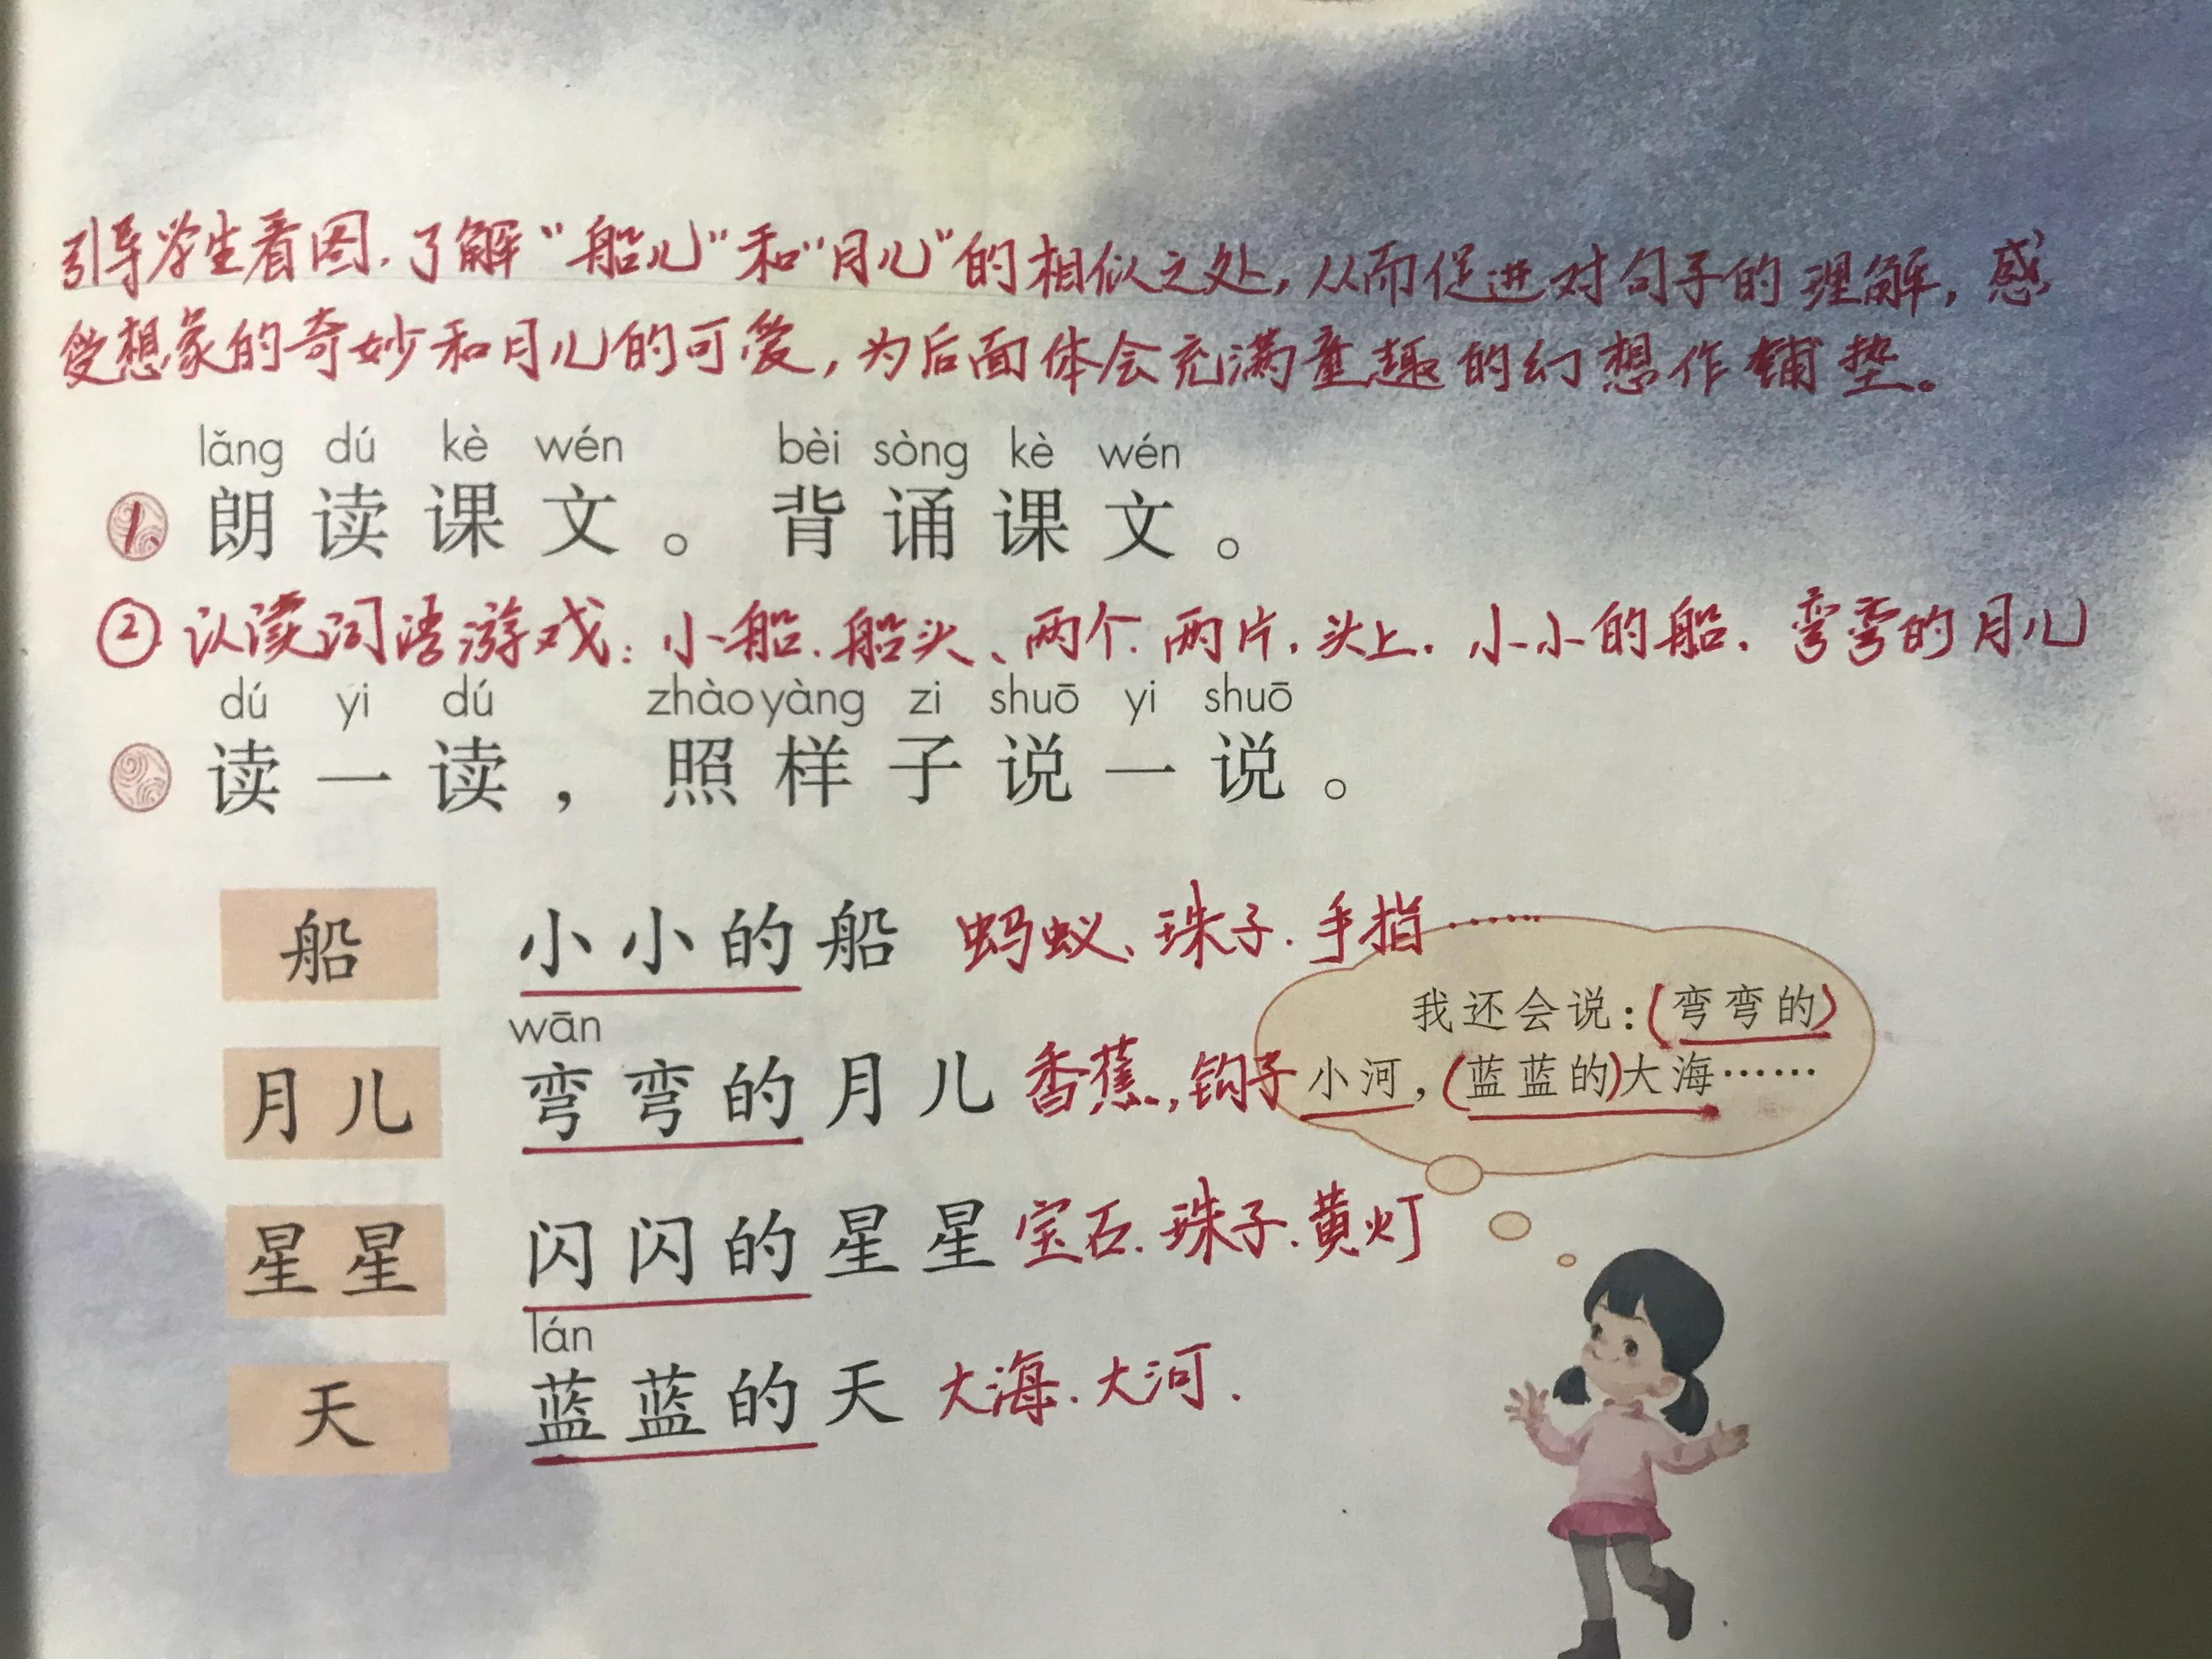 引导学生看图,了解“船儿”和“月儿”的相似之处,从而促进对句子的理解,感
受想象的奇妙和月儿的可爱,为后面体会充满童趣的幻想作铺垫。
lǎng dú kè wén bèi sòng kè wén
1. 朗读课文。背诵课文。
② 认读词语游戏:小船、船头、两个、两片、头上、小小的船、弯弯的月儿
dú yi dú zhào yàng zi shuō yi shuō
读一读,照样子说一说。
船 小小的船 蚂蚁、珠子、手指……
我还会说:(弯弯的)
wān
月儿 弯弯的月儿 香蕉、钩子
小河,(蓝蓝的)大海……
星星 闪闪的星星 宝石、珠子、黄灯
lán
天 蓝蓝的天 大海、大河.